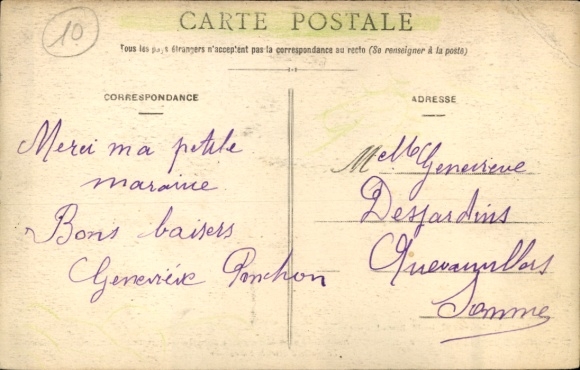 10
CARTE POSTALE
Tous les pays étrangers n'acceptent pas la correspondance au recto (Se renseigner à la poste)
CORRESPONDANCE
Merci ma petite
maraine
Bons baisers
Geneviève Ponchon
ADRESSE
Mlle Genevieve
Desjardins
Quevauvillers
Somme